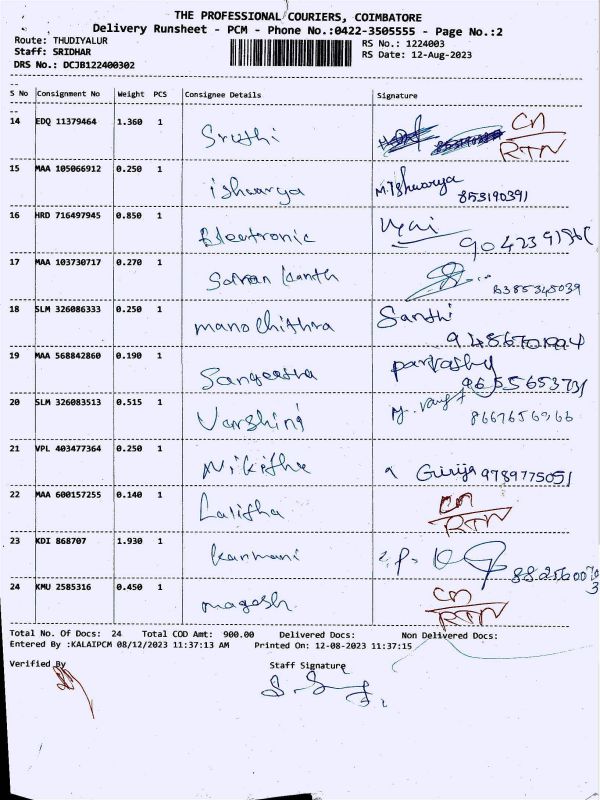 THE PROFESSIONAL COURIERS, COIMBATORE
Delivery Runsheet - PCM - Phone No.:0422-3505555 - Page No.:2
Route: THUDIYALUR
RS No.: 1224003
Staff: SRIDHAR
RS Date: 12-Aug-2023
DRS No.: DCJB122400302
S No Consignment No Weight PCS Consignee Details Signature
14 EDQ 11379464 1.360 1 Sruthi RTN
15 MAA 105066912 0.250 1 ishwarya M.Ishwarya
853190391
16 HRD 716497945 0.850 1 Electronic
17 MAA 103730717 0.270 1
18 SLM 326086333 0.250 1 mano chithra Santhi
19 MAA 568842860 0.190 1 Sangeetha
9655653731
20 SLM 326083513 0.515 1 Varshini
8667656966
21 VPL 403477364 0.250 1 Nikitha Girija 9789775051
22 MAA 600157255 0.140 1 Lalitha RTN
23 KDI 868707 1.930 1 kanmani
24 KMU 2585316 0.450 1 magesh RTN
Total No. Of Docs: 24 Total COD Amt: 900.00 Delivered Docs: Non Delivered Docs:
Entered By :KALAIPCM 08/12/2023 11:37:13 AM Printed On: 12-08-2023 11:37:15
Verified By Staff Signature